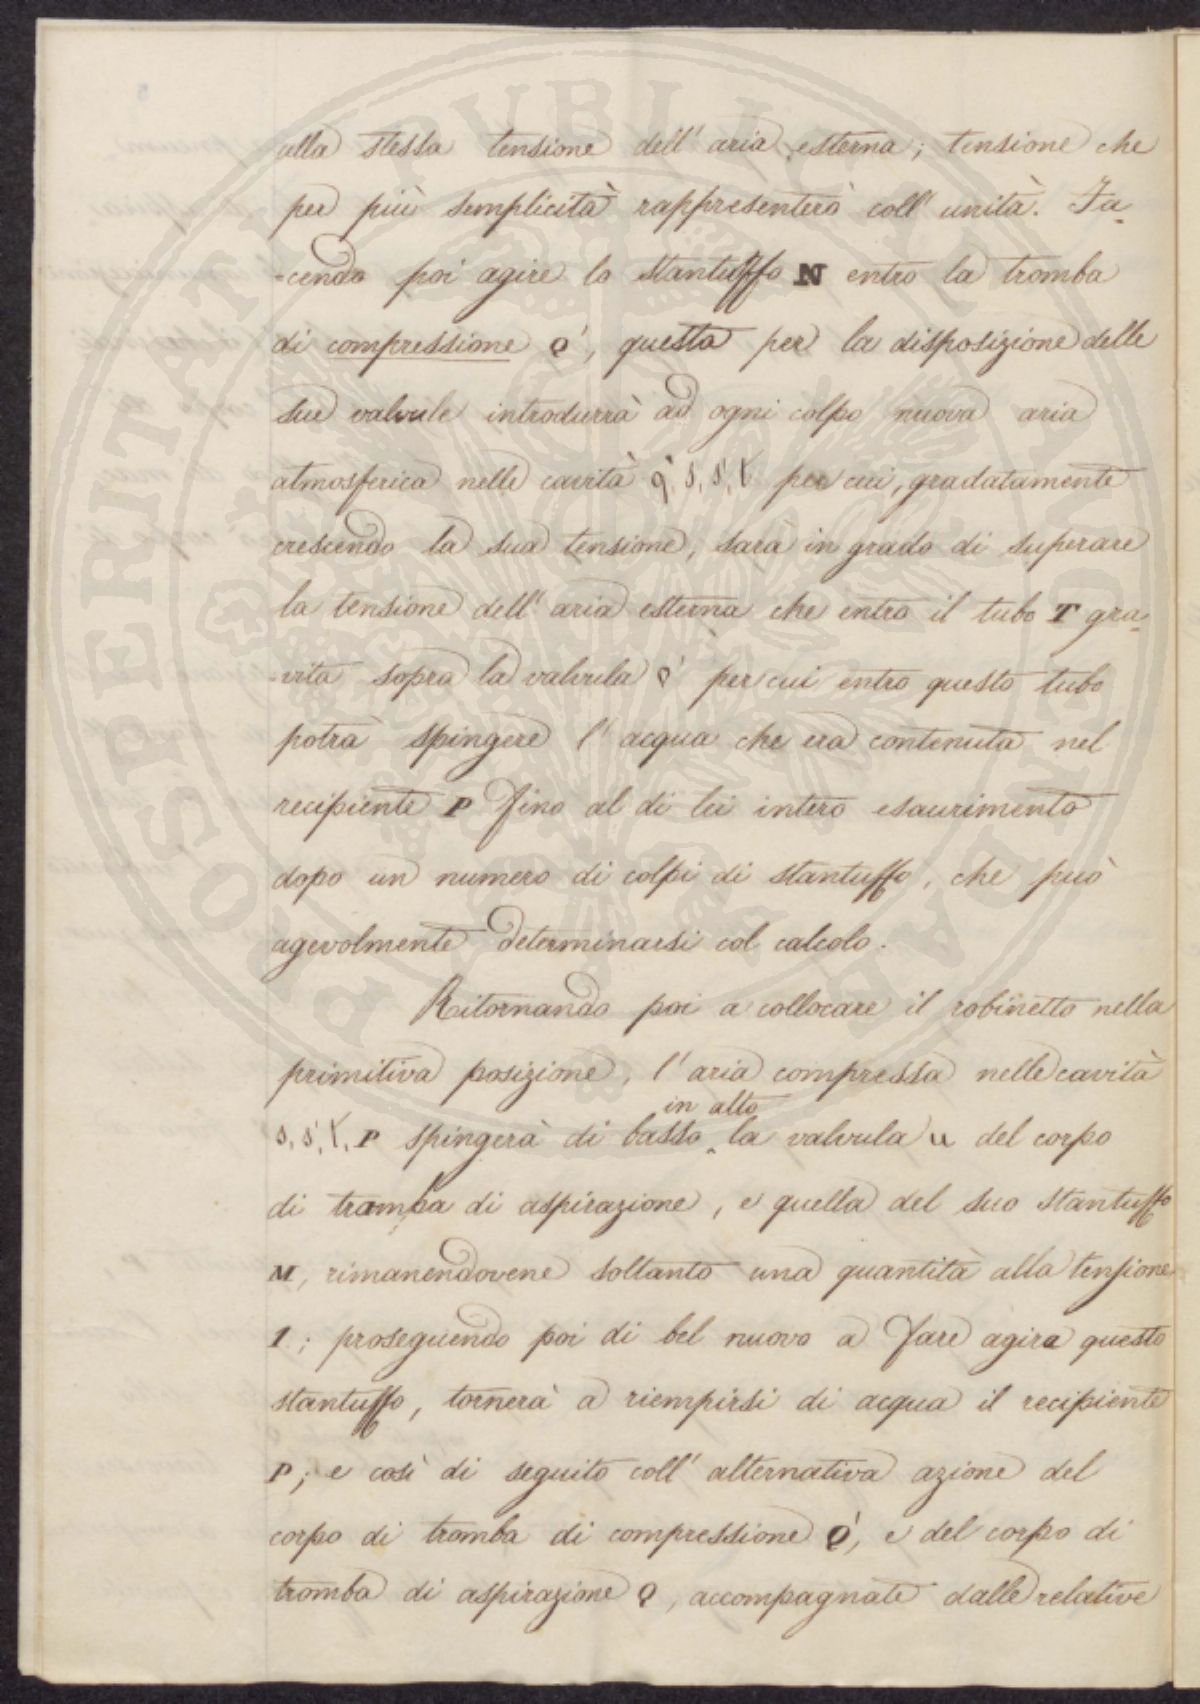 alla stessa tensione dell' aria esterna; tensione che
per più semplicità rappresenterò coll' unità. Fa-
-cendo poi agire lo stantuffo N entro la tromba
di compressione Q', questa per la disposizione delle
sue valvule introdurrà ad ogni colpo nuova aria
atmosferica nelle cavità q', s, s', t per cui, gradatamente
crescendo la sua tensione, sarà in grado di superare
la tensione dell' aria esterna che entro il tubo T gra-
-vita sopra la valvula per cui entro questo tubo
potrà spingere l' acqua che era contenuta nel
recipiente P fino al di lei intero esaurimento
dopo un numero di colpi di stantuffo, che può
agevolmente determinarsi col calcolo.
Ritornando poi a collocare il robinetto nella
primitiva posizione, l' aria compressa nelle cavità
in alto
s, s', t, P spingerà di basso la valvula u del corpo
di tromba di aspirazione, e quella del suo stantuffo
M, rimanendovene soltanto una quantità alla tensione
1; proseguendo poi di bel nuovo a fare agire questo
stantuffo, tornerà a riempirsi di acqua il recipiente
P; e così di seguito coll' alternativa azione del
corpo di tromba di compressione Q', e del corpo di
tromba di aspirazione Q, accompagnate dalle relative
PROSPERITATI PUBLICAE AUGENDAE